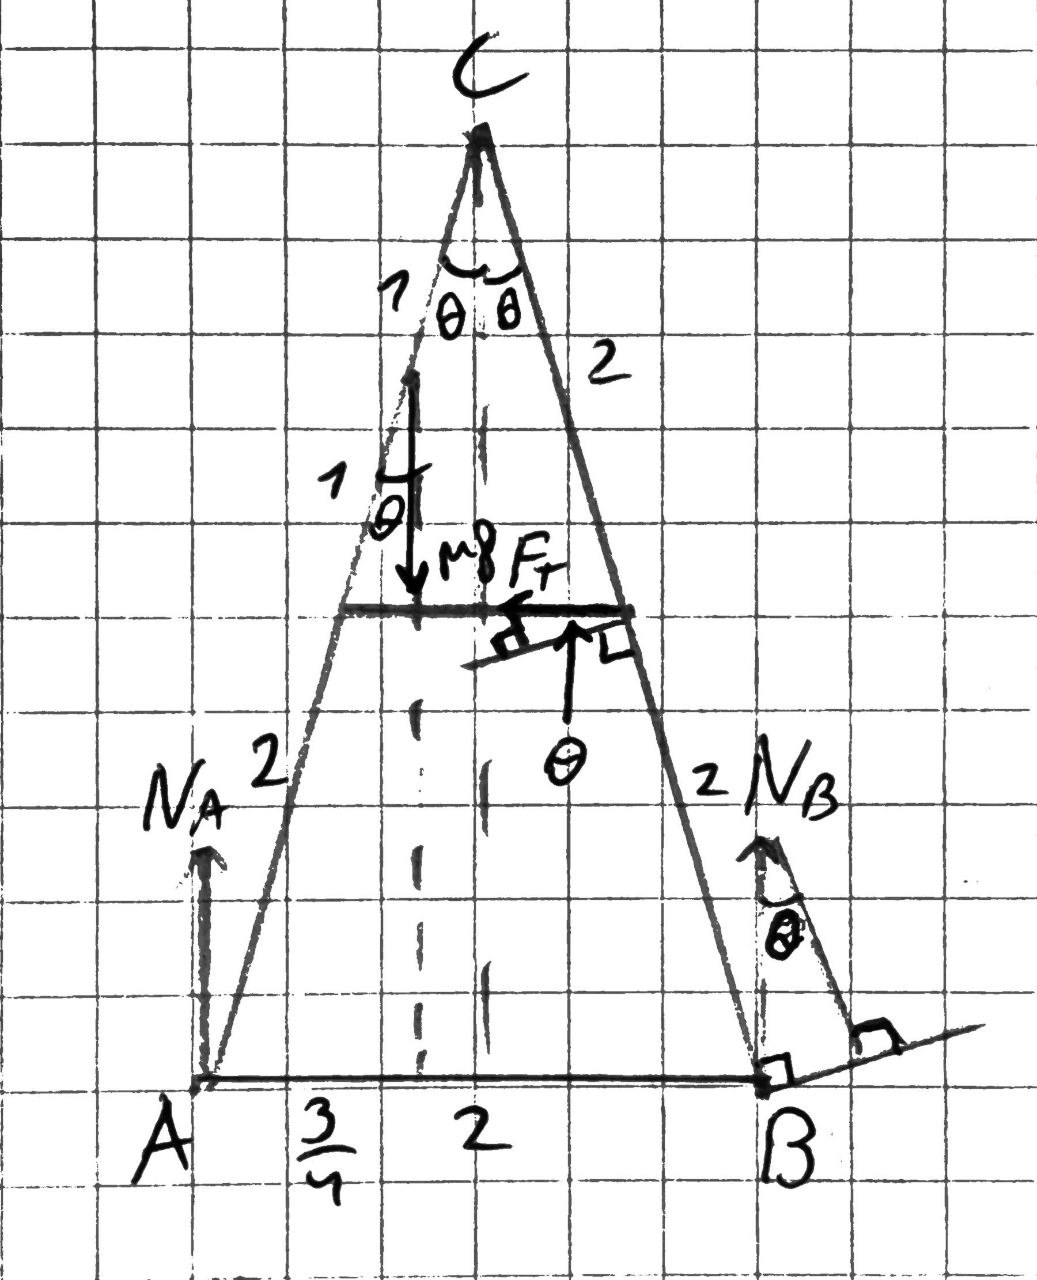 C
1
θ θ
2
1
θ
Mg
F_T
θ
2
N_A
2
N_B
θ
A
3/4
2
B